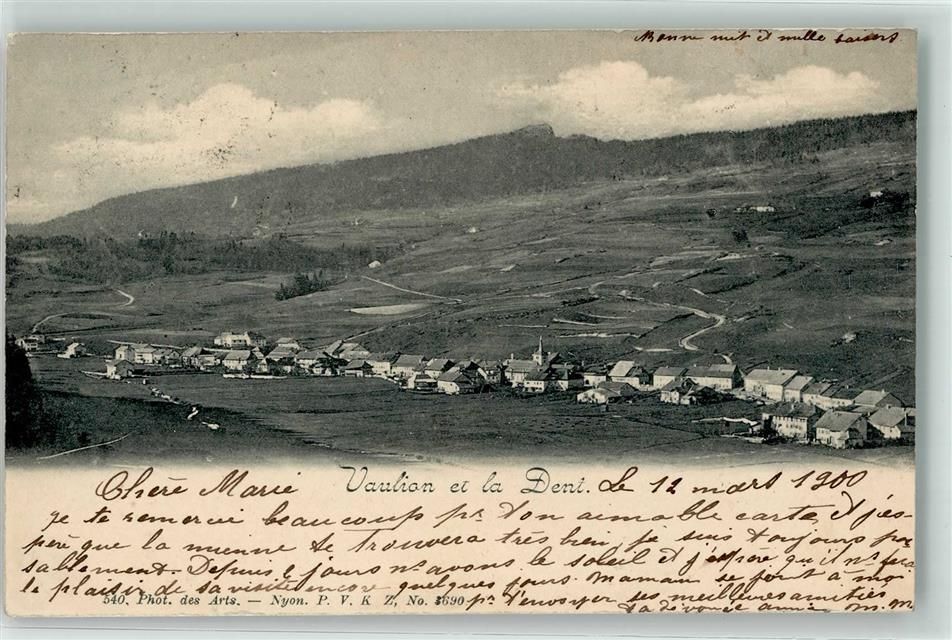 Bonne nuit et mille baisers
Chère Marie
Vaulion et la Dent.
Le 12 mars 1900
je te remercie beaucoup pr. ton aimable carte, et j'es-
père que la mienne te trouvera très bien, je suis toujours pas
sablement. Depuis 2 jours ns. avons le soleil et j'espère qu'il ns. fera
le plaisir de sa visite encore quelques jours. Maman se joint à moi
540. Phot. des Arts. — Nyon. P. V. K Z, No. 3690
pr. t'envoyer ses meilleures amitiés
Ta dévouée amie M. M